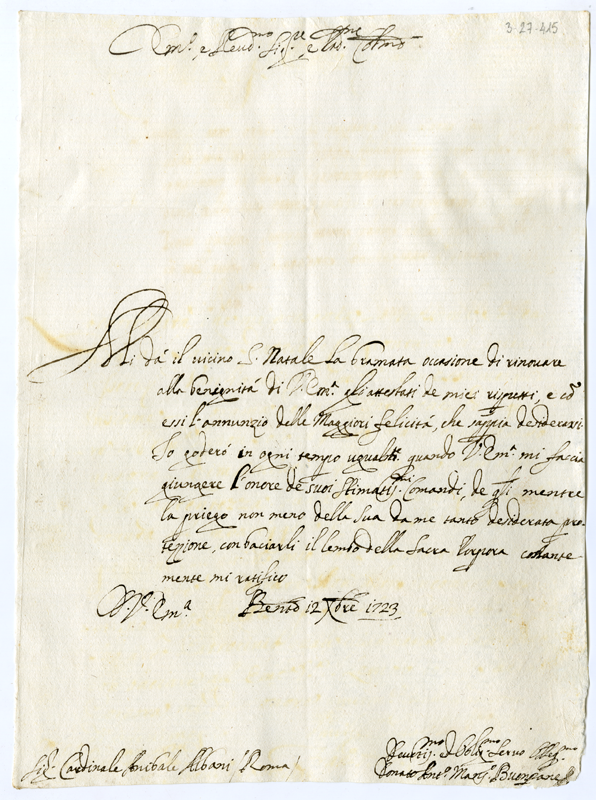 3-27-415
Em.º e Reud.mo Sig.re e Pad.ne Colmo.
Mi dá il uicino S. Natale la bramata occasione di rinouare
alla benignitá di V. Em.ª gli attestati de miei rispetti, e cō
essi l'annunzio delle Maggiori felicitá, che sappia desiderarsi
Io goderó in ogni tempo ugualte. quando V.ª Em.ª mi faccia
giungere l'onore de suoi stimatis.mi Comandi, de q.li mentre
la priego non meno della sua da me tanto desiderata pro-
tezione, con baciarli il lembo della Sacra Porpora costante
mente mi ratifico
D. V.ª Em.ª Bento 12 Xbre 1723
Sig.r Cardinale Anibale Albani / Roma /
Deuotis.mo et Oblig.mo Seruo
Donato Ant.º Maris.